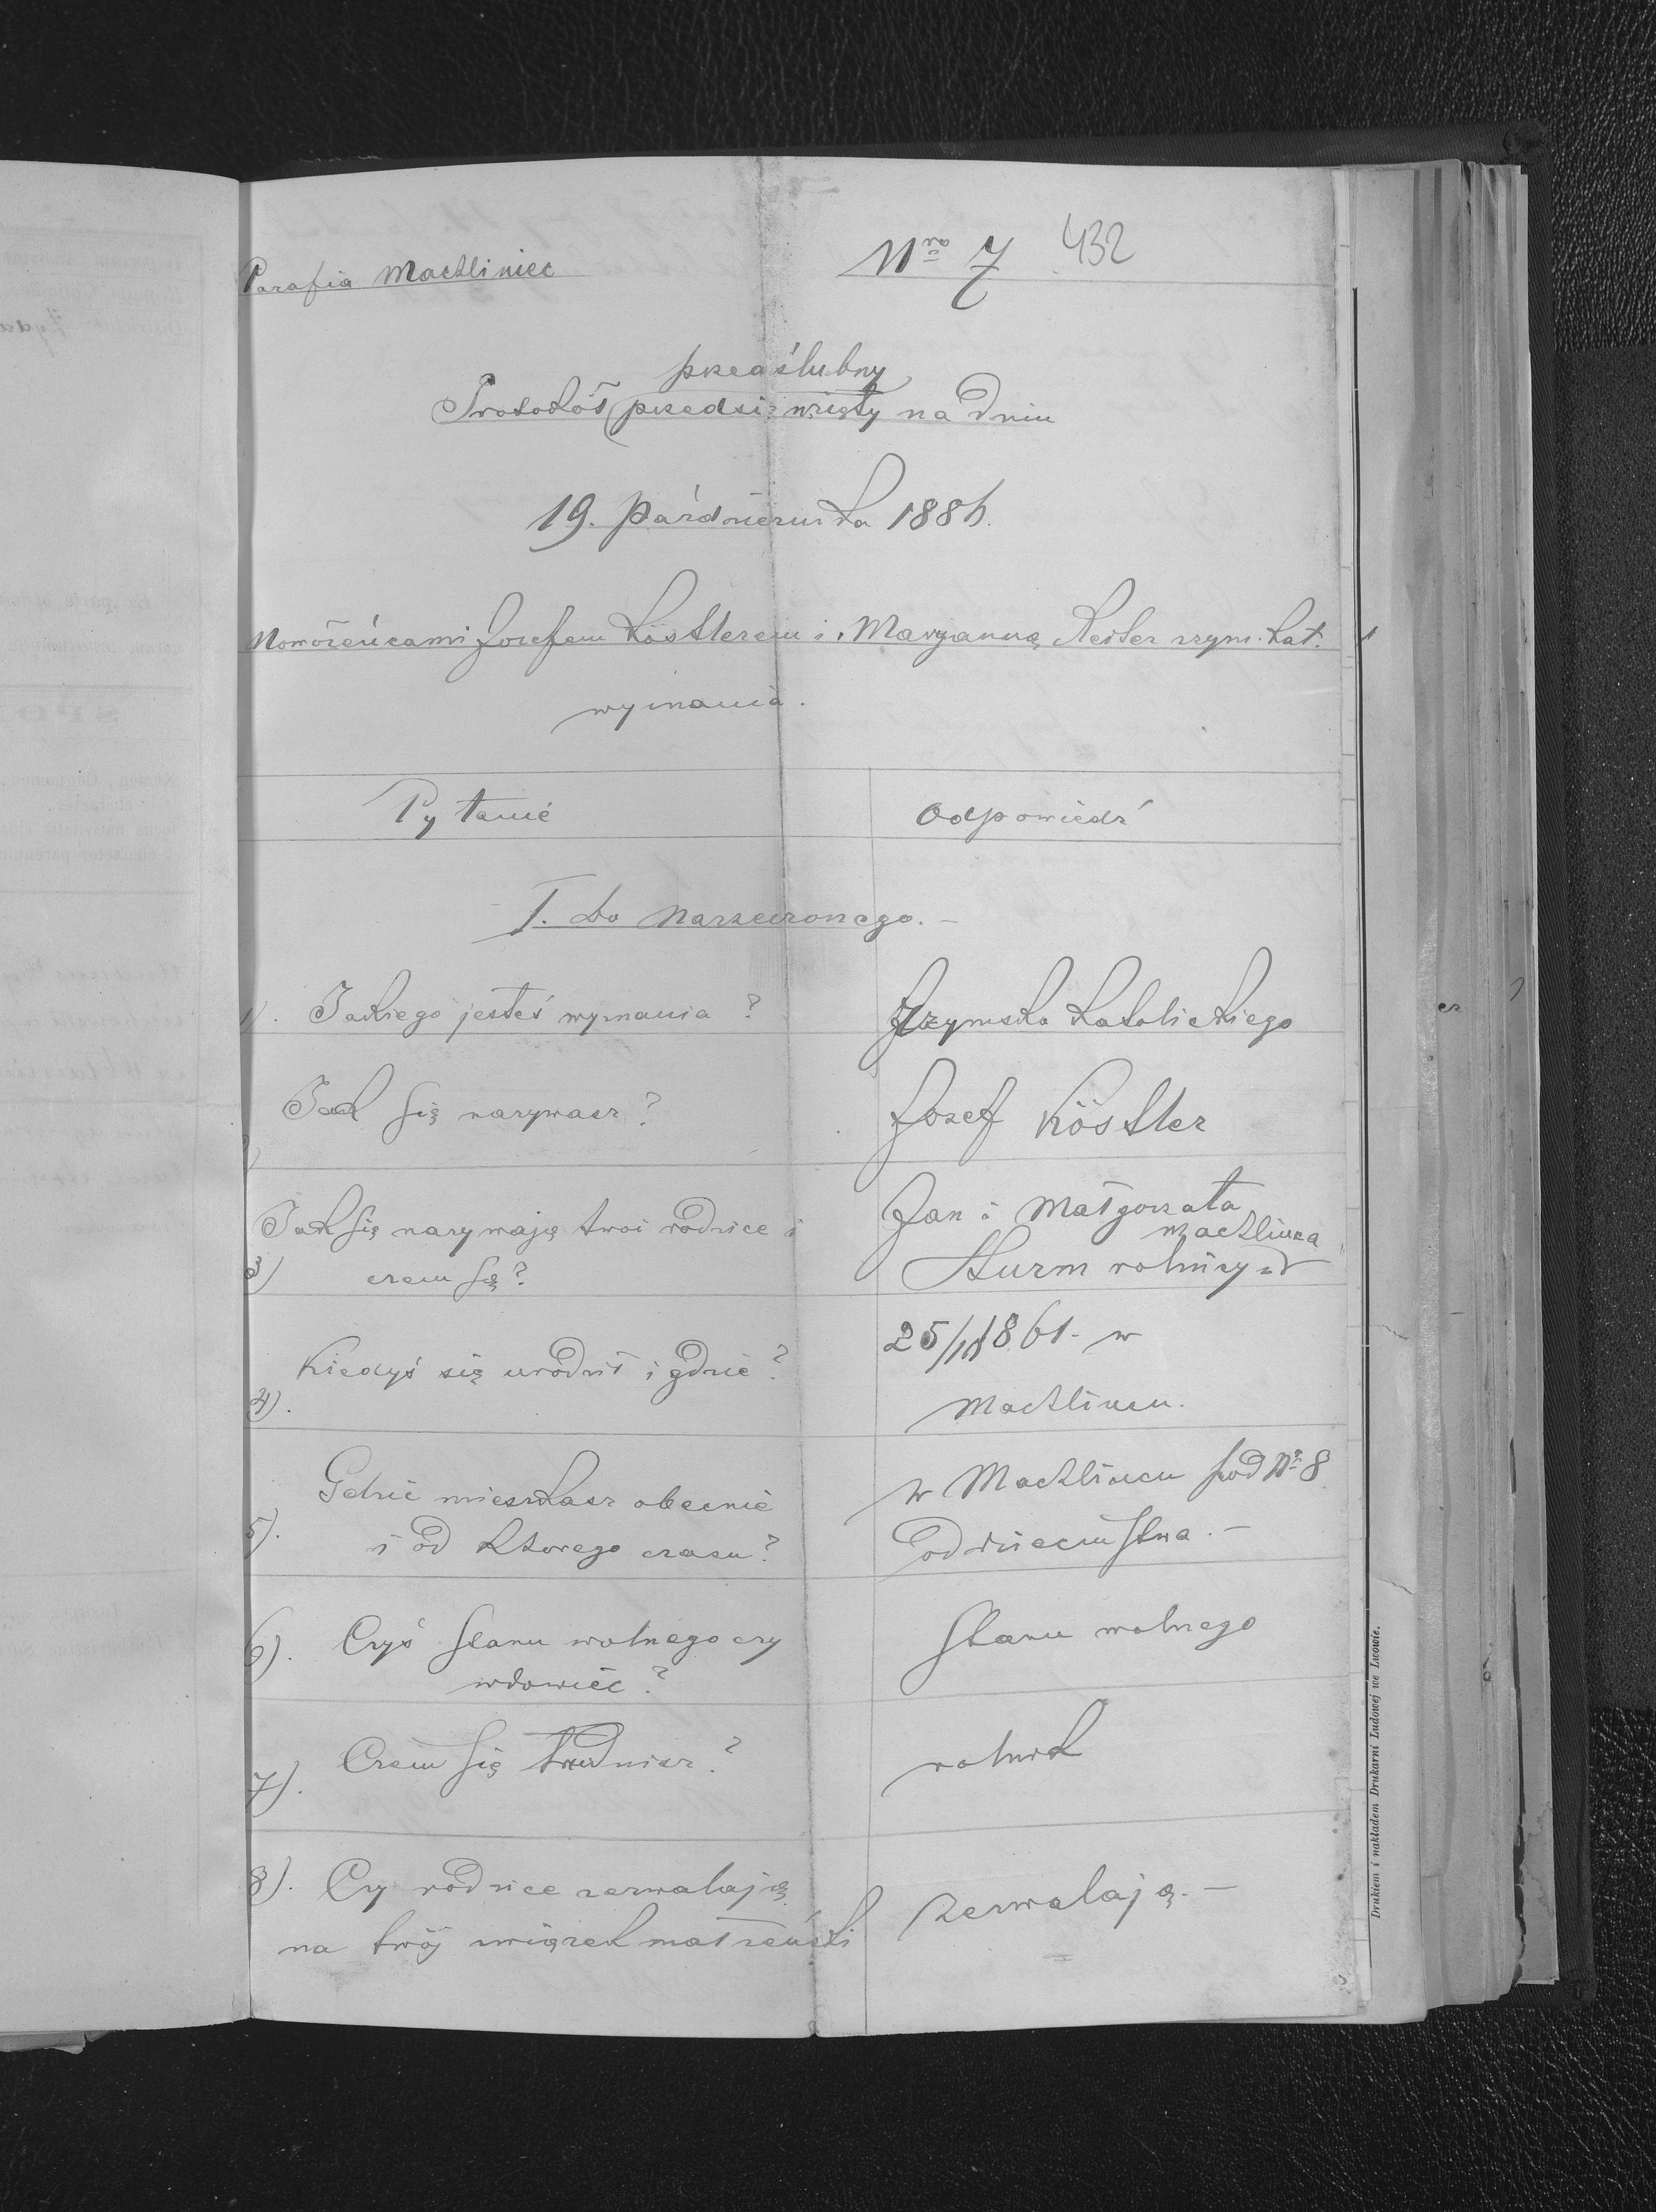 Parafia Machliniec
Nro 7 432
przedślubny
Protokół przedsięwzięty na dniu
19. Października 1886.
Nowożeńcami Jozefem Köstlerem i Maryanną Reiter rzym. kat.
wyznania.
Pytanie Odpowiedź
I. Do Narzeczonego.-
1). Jakiego jesteś wyznania? Rzymsko Katolickiego
Jak się nazywasz? Jozef Köstler
Jak się nazywają twoi rodzice i Jan i Małgorzata
3) czem są? Sturm rolnicy z Machlinca
Kiedyś się urodził i gdzie? 25/11 1861- w
4). Machlincu.
Gdzie mieszkasz obecnie w Machlincu pod No 8
5). i od ktorego czasu? od dziecinstwa.-
6). Czyś stanu wolnego czy Stanu wolnego
wdowiec?
7). Czem się trudnisz? rolnik
8). Czy rodzice zezwalają zezwalają.-
na twój związek małżeński
Drukiem i nakładem Drukarni Ludowej we Lwowie.